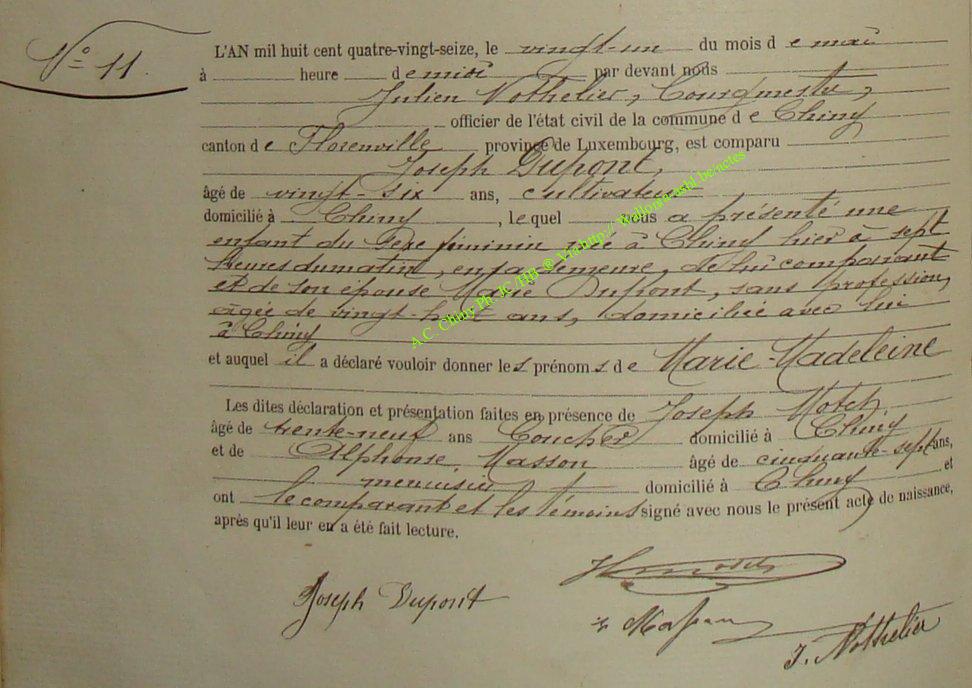 N° 11.
L'AN mil huit cent quatre-vingt-seize, le vingt-un du mois de mai
à heure demidi par devant nous
Julien Nothelier, Bourgmestre,
officier de l'état civil de la commune de Chiny
canton de Florenville, province de Luxembourg, est comparu
Joseph Dupont,
âgé de vingt-six ans, cultivateur
domicilié à Chiny, lequel nous a présenté une
enfant du sexe féminin née à Chiny hier à sept
heures du matin, en sa demeure, de lui comparant
et de son épouse Marie Dupont, sans profession,
âgée de vingt-huit ans, domiciliée avec lui
à Chiny
et auquel il a déclaré vouloir donner les prénoms de Marie-Madeleine
Les dites déclaration et présentation faites en présence de Joseph Motch,
âgé de trente-neuf ans domicilié à Chiny
et de Alphonse Masson âgé de cinquante-sept ans,
menuisier domicilié à Chiny et
ont le comparant et les témoins signé avec nous le présent acte de naissance,
après qu'il leur en a été fait lecture.
Joseph Dupont
Masson
J. Nothelier
A.C. Chiny Ph. JC/HB ® Via http://